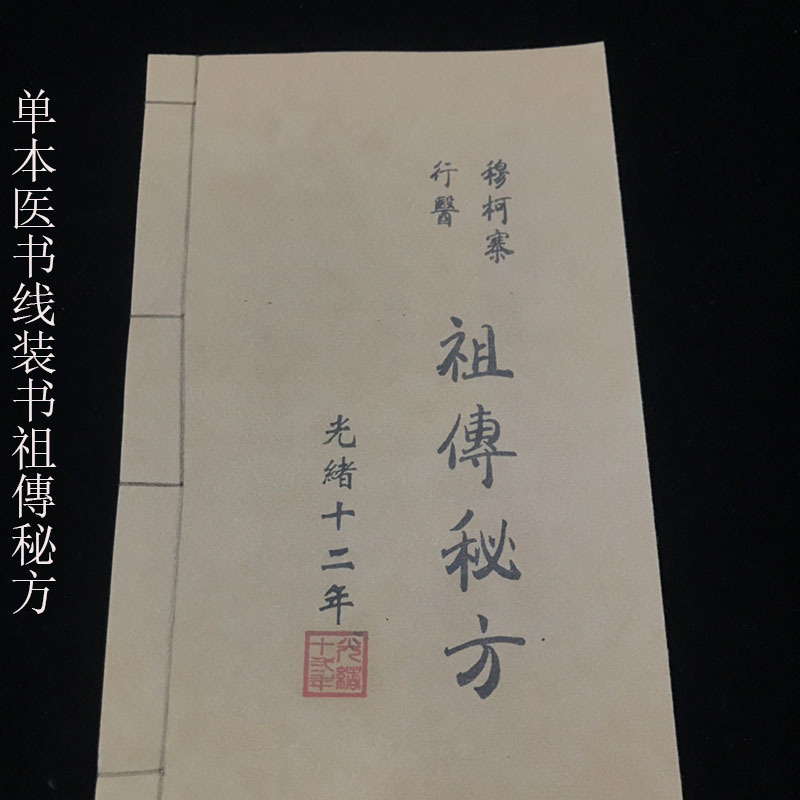 单本医书线装书祖傳秘方
穆柯寨
行醫
祖傳秘方
光緒十二年
光緒
十弍年